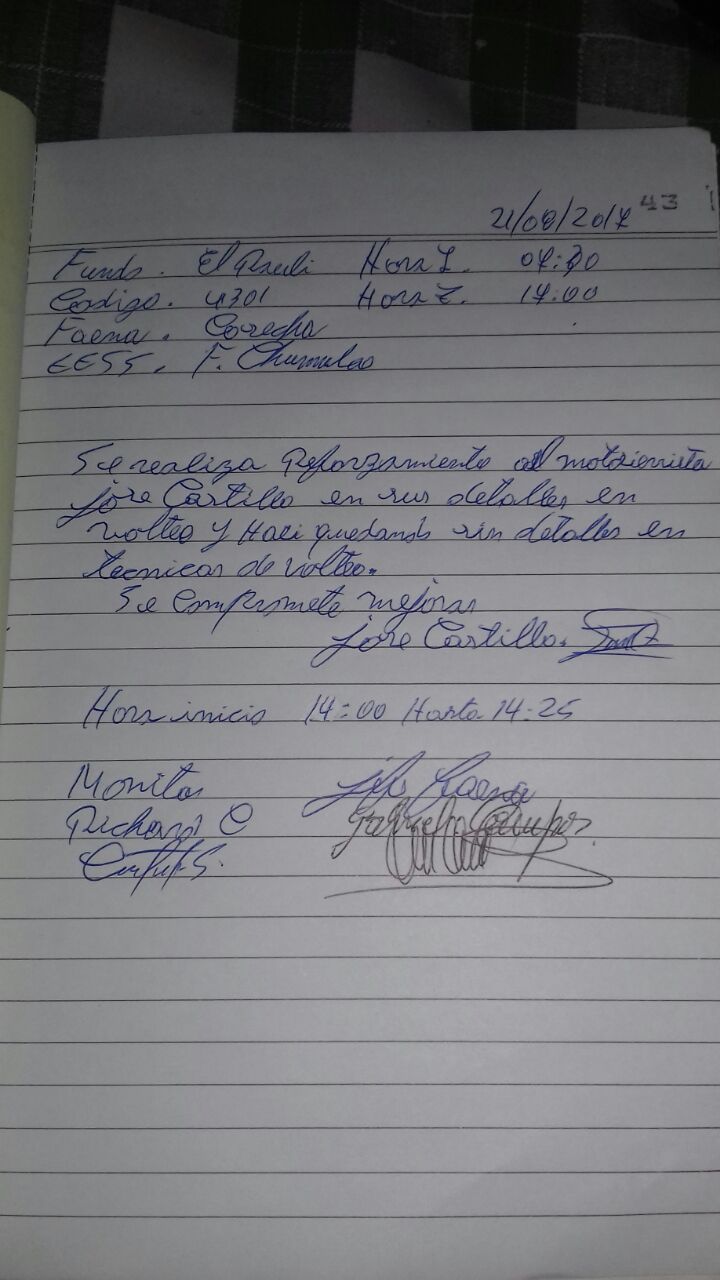 43
21/08/2017
Fundo. El Rauli Hora I. 07:30
Codigo. 4301 Hora T. 14:00
Faena. Cosecha
EESS. F. Chumulao
Se realiza Reforzamiento al motosierrista
jose Castillo en sus detalles en
volteo y Haci quedando sin detalles en
tecnicas de volteo.
Se Compromete mejorar
jose Castillo.
Hora inicio 14:00 Hasta 14:25
Monitor jefe Faena
Richard C Campos.